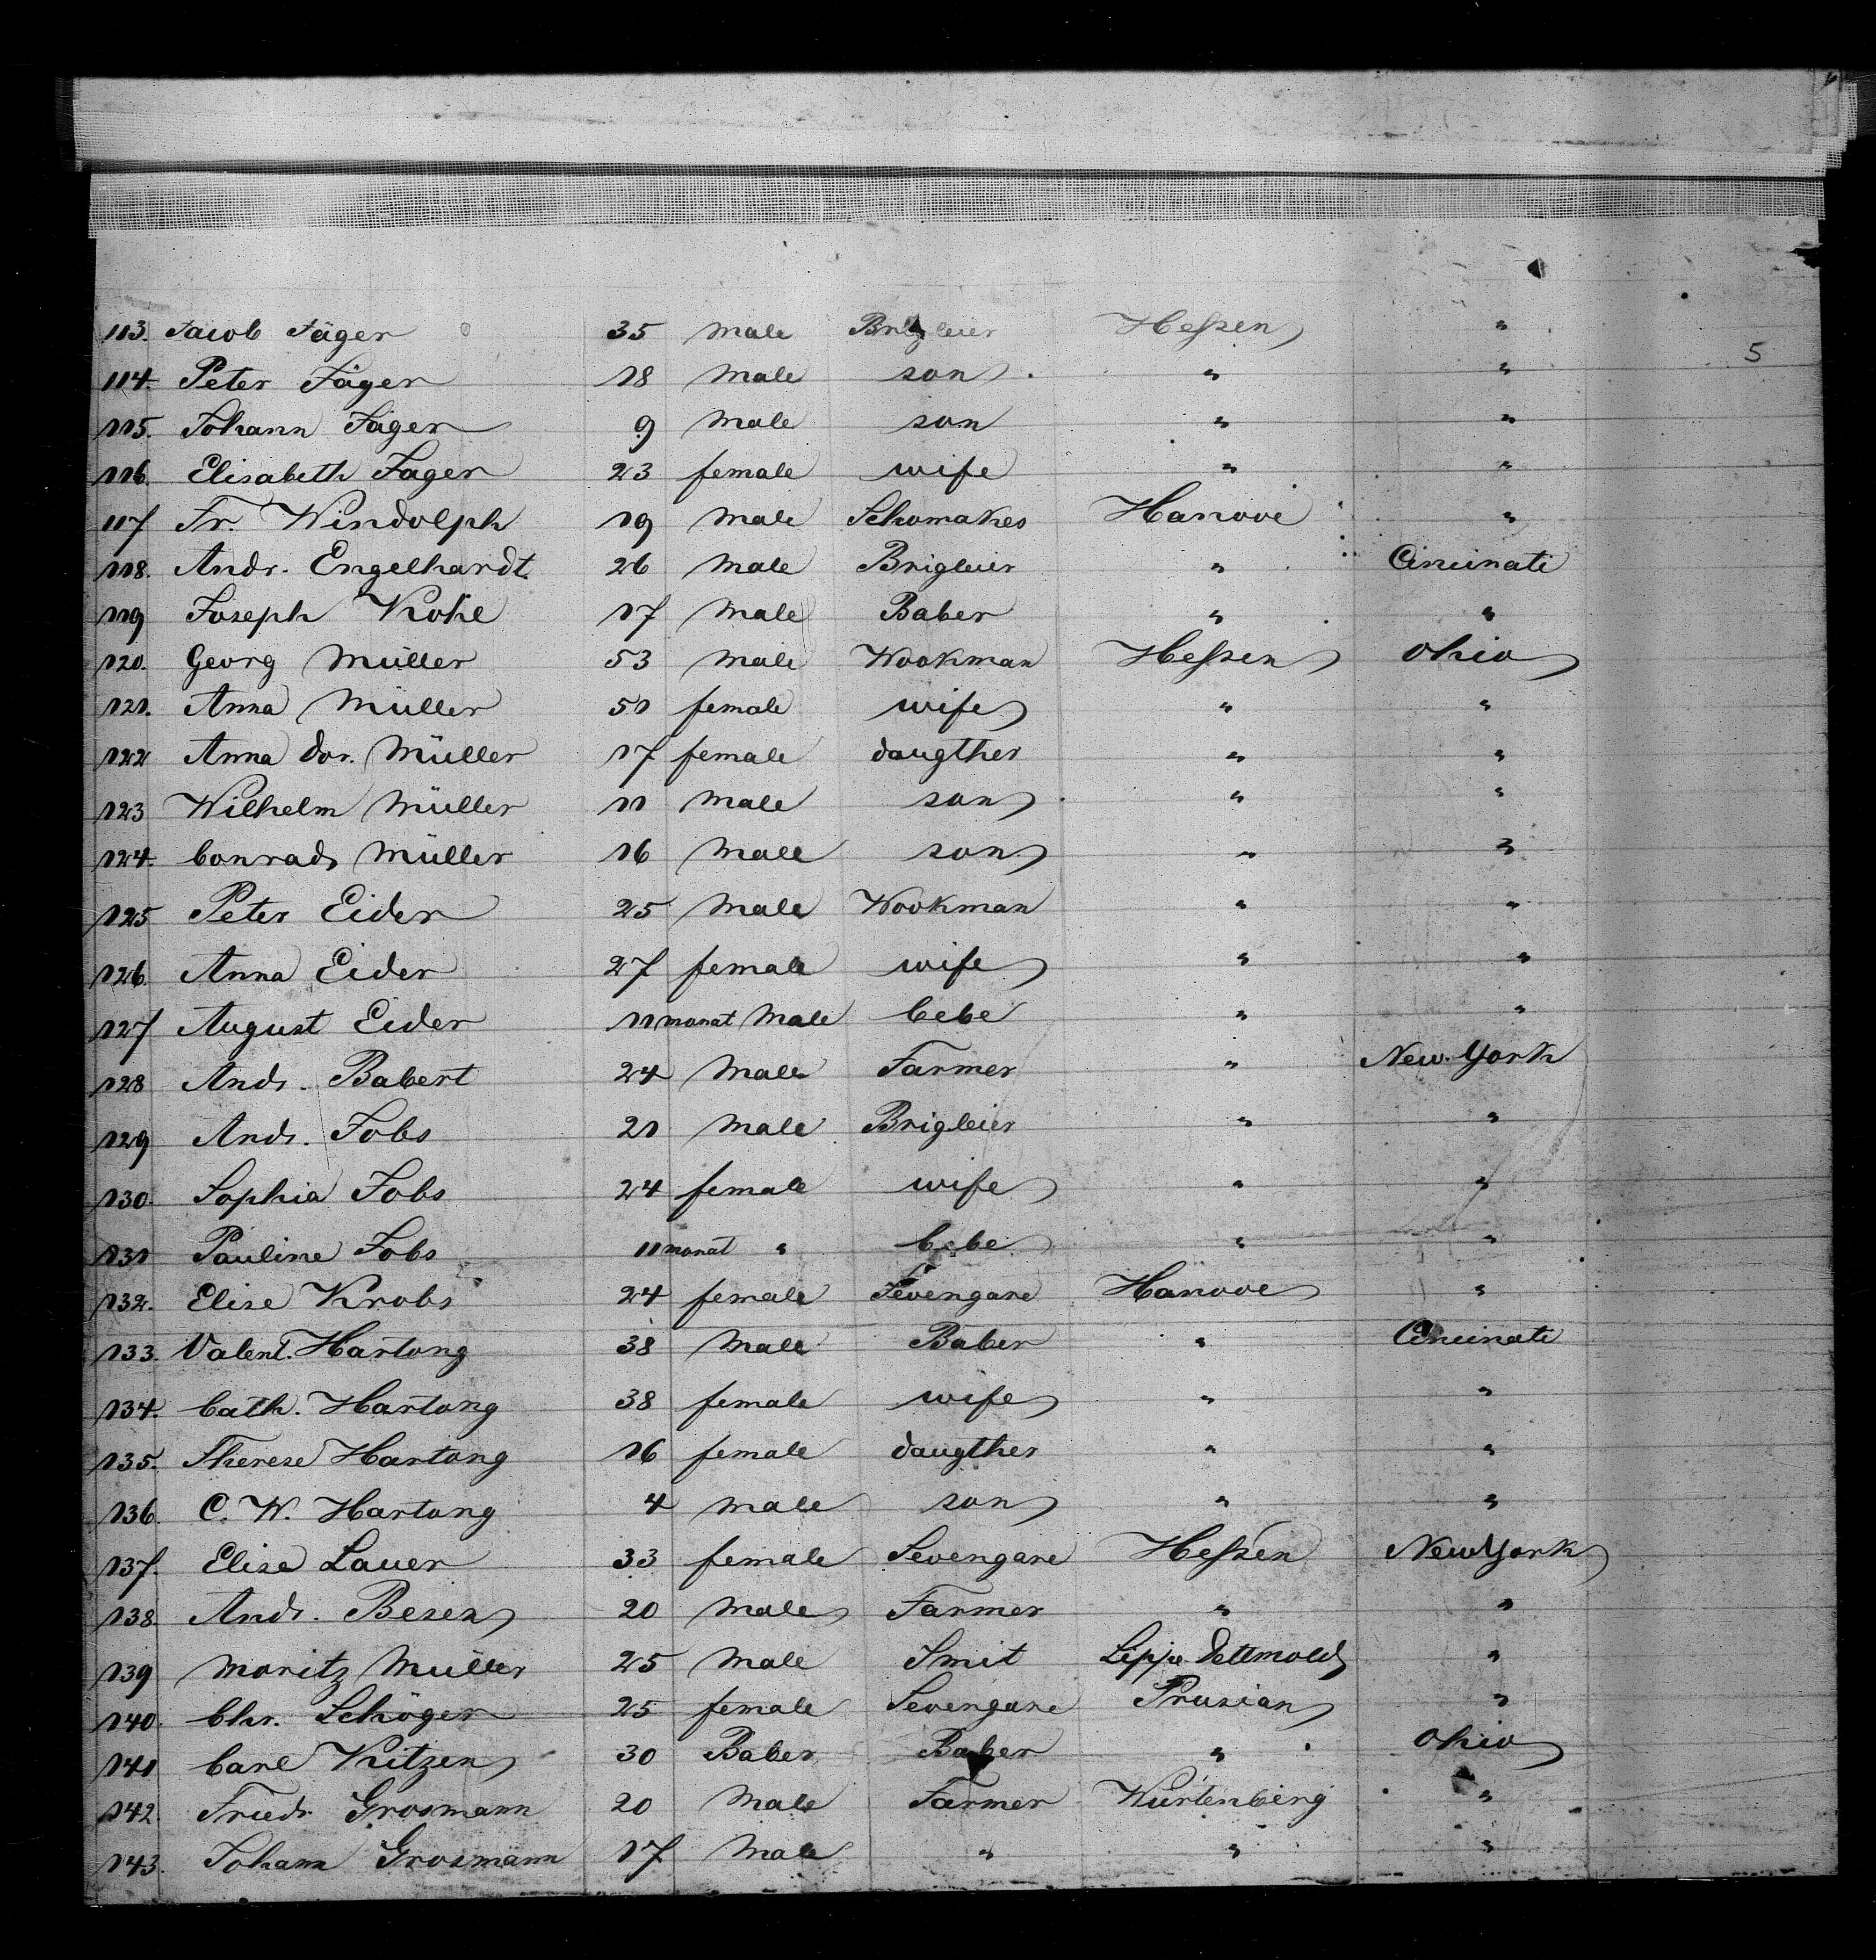 113. Jacob Jäger 35 Male Brigleier Hessen "
5
114. Peter Jäger 18 Male son "  "
115. Johann Jäger 9 Male son " "
116. Elisabeth Jager 23 female wife " "
117 Fr. Windolph 19 Male Schomakes Hanove "
118. Andr. Engelhardt. 26 Male Brigleier " Cincinati
119 Joseph Kohe 17 Male Baber " "
120. Georg Müller 53 Male Wookman Hessen Ohio
121. Anna Müller 51 female wife " "
122 Anna Dor. Müller 17 female daugther " "
123 Wilhelm Müller 11 Male son " "
124. Conrad Müller 16 Male son " "
125 Peter Eider 25 Male Wookman " "
126. Anna Eider 27 female wife " "
127 August Eider 11 monat Male bebe " "
128 Andr. Babert 24 Male Farmer " New-York
129 Andr. Jobs 21 Male Brigleier " "
130. Sophia Jobs 24 female wife " "
131 Pauline Jobs 11 monat " bebe " "
132. Elise Krobs 24 female Sevengare Hanove "
133. Valent. Hartong 38 Male Baber " Cincinati
134. Cath. Hartong 38 female wife " "
135. Therese Hartong 16 female daugther " "
136. C. W. Hartong 4 Male son " "
137. Elise Lauer 33 female Sevengare Hessen New York
138. Andr. Besen 20 Male Farmer " "
139 Moritz Müller 25 Male Smit Lippe Dettmold "
140. Chr. Schöger 25 female Sevengare Prusian "
141 Carl Kitzen 30 Baber Baber " Ohio
142. Friedr. Grosmann 20 Male Farmer Würtenberg "
143. Johann Grosmann 17 Male " " "